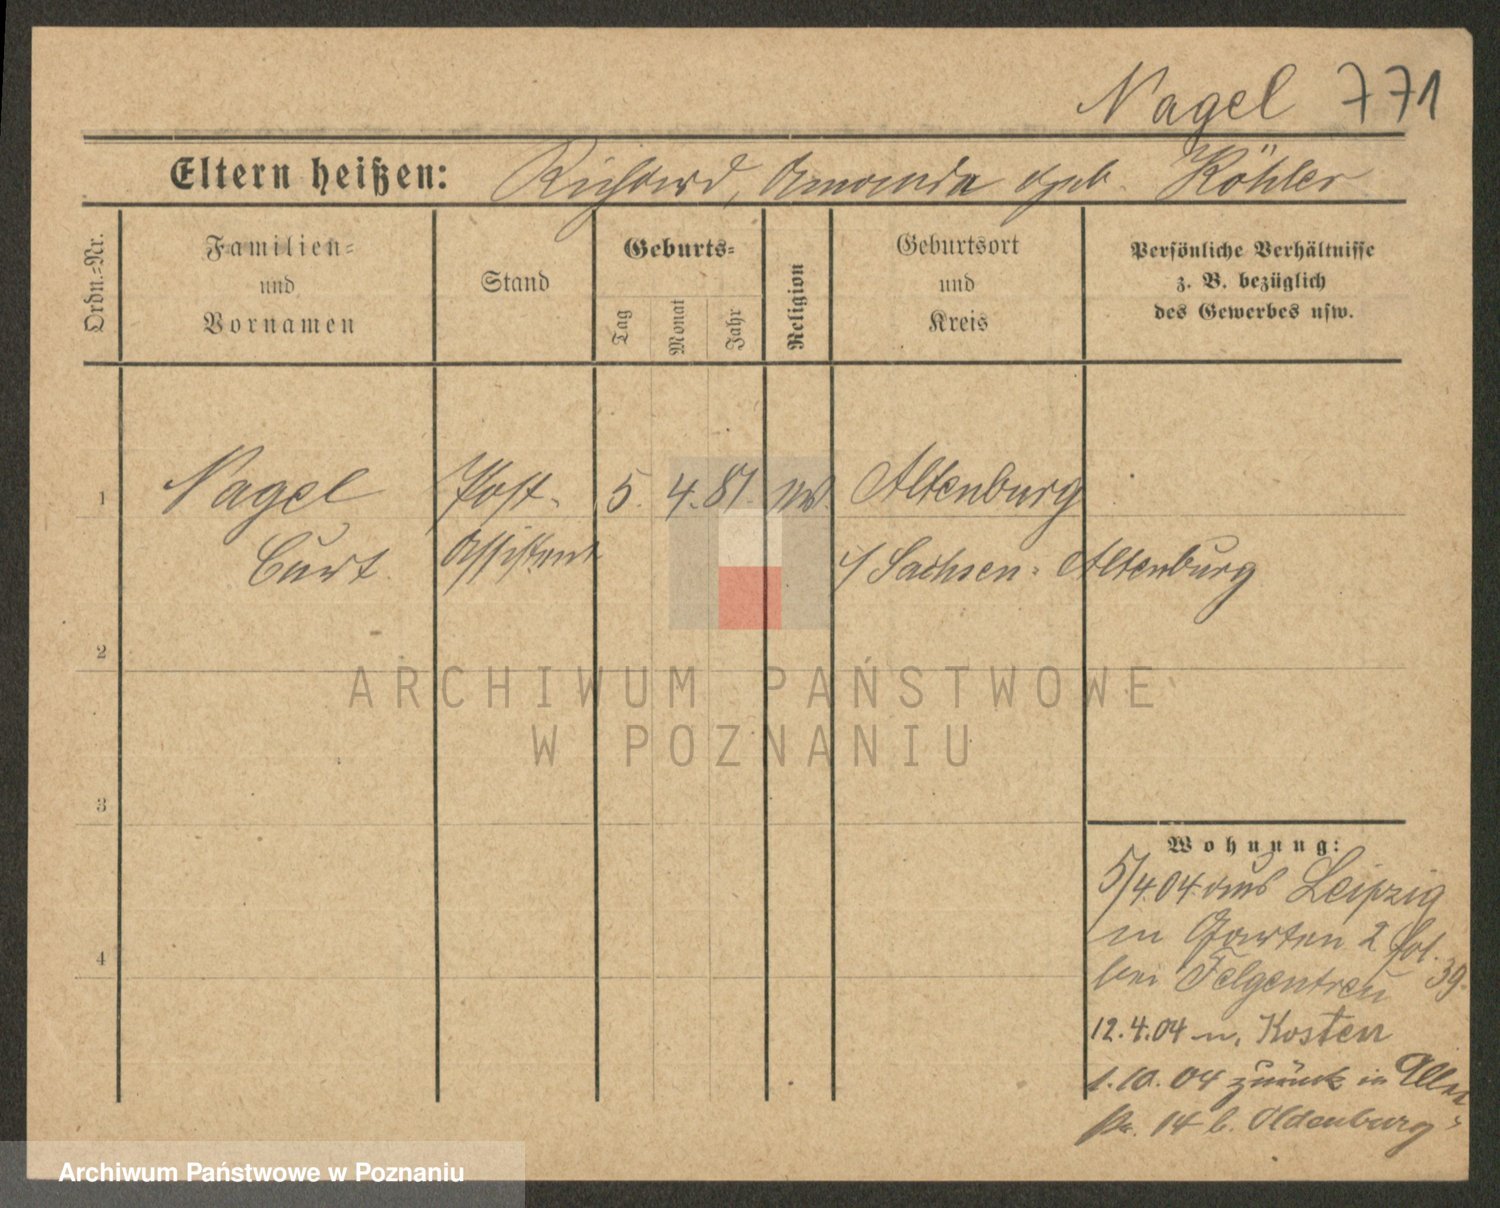 Nagel 771
Eltern heißen: Richard, Amanda geb. Köhler
Ordn.=Nr.
Familien=
und
Vornamen
Stand
Geburts=
Tag
Monat
Jahr
Religion
Geburtsort
und
Kreis
Persönliche Verhältnisse
z. B. bezüglich
des Gewerbes usw.
1 Nagel Post- 5. 4. 81. Altenburg
Curt Assistent Sachsen-Altenburg
2
3
4
ARCHIWUM PAŃSTWOWE
W POZNANIU
Wohnung:
5/4.04. aus Leipzig
in Garten 2
bei Felgentreu 39.
12.4.04 n. Kosten
1.10.04 zurück in
14 b. Oldenburg
Archiwum Państwowe w Poznaniu